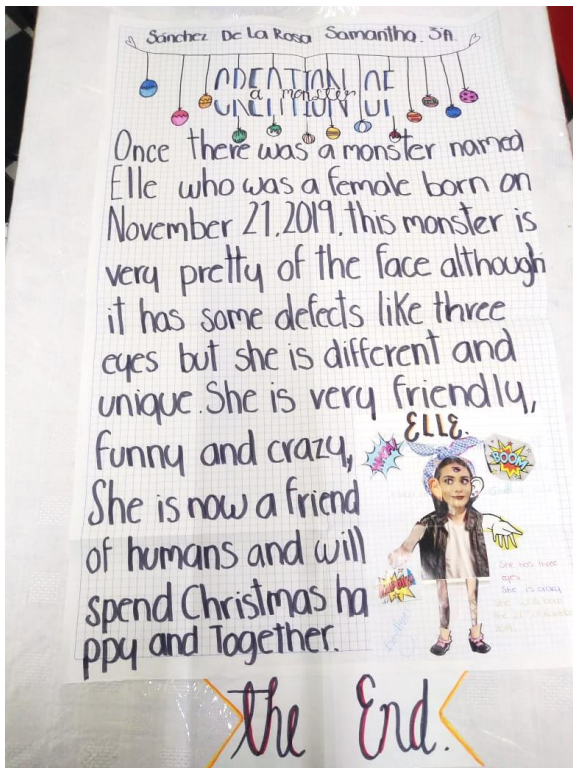 Sánchez De La Rosa Samantha. 3A.
CREATION OF
a monster
Once there was a monster named
Elle who was a female born on
November 21,2019, this monster is
very pretty of the face although
it has some defects like three
eyes but she is different and
unique. She is very friendly,
funny and crazy,
She is now a friend
of humans and will
spend Christmas ha
ppy and Together.
ELLE.
BOOM
She has three
eyes
She is crazy
She was born
the End.